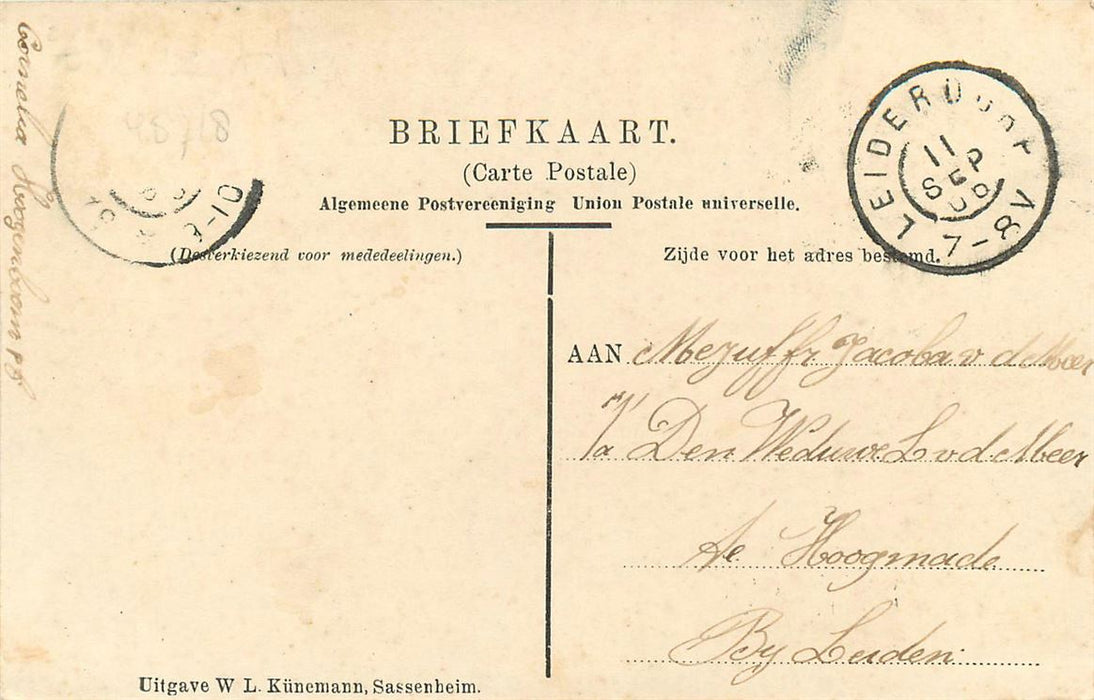 Cornelia Hoogenboom
BRIEFKAART.
(Carte Postale)
Algemeene Postvereeniging Union Postale universelle.
(Desverkiezend voor mededeelingen.)
Zijde voor het adres bestemd.
LEIDERDORP
11
SEP
7-8V
8-10
AAN Mejuffr Jacoba v d Meer
p/a Den Weduwe L v d Meer
Te Hoogmade
By Leiden
Uitgave W L. Künemann, Sassenheim.